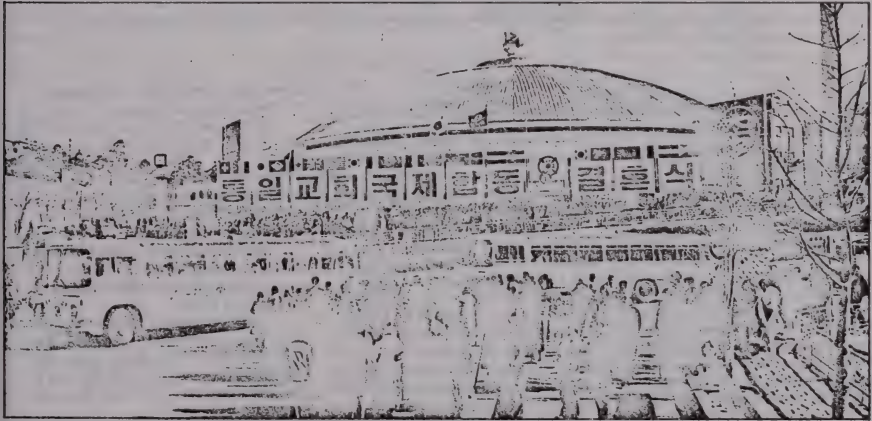 통일교회국제합동결혼식